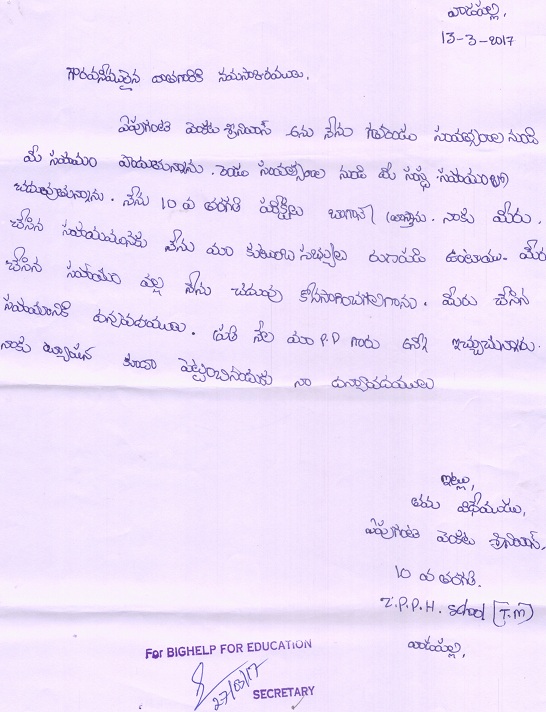 వాడపల్లి,
13-3-2017
గౌరవనీయులైన దాతగారికి నమస్కారములు.
ఏపుగంటి వెంకట శ్రీనివాస్ అను నేను గత రెండు సంవత్సరాల నుండి
మీ సహాయం పొందుతున్నాను. రెండు సంవత్సరాల నుండి మీ సంస్థ సహాయంతో
చదువుతున్నాను. నేను 10 వ తరగతి పరీక్షలు బాగానే వ్రాస్తాను. నాకు మీరు.
చేసిన సహాయమునకు నేను మా కుటుంబ సభ్యులు రుణపడి ఉంటాము. మీరు
చేసిన సహాయం వల్ల నేను చదువు కొనసాగించగలిగాను. మీరు చేసిన
సహాయానికి ధన్యవాదములు. ప్రతి నెల మా P.D గారు ఇచ్చుచున్నారు.
నాకు ట్యూషన్ కూడా పెట్టించినందుకు నా ధన్యవాదములు
ఇట్లు,
తమ విధేయుడు,
ఏపుగంటి వెంకట శ్రీనివాస్.
10 వ తరగతి.
Z.P.P.H. school [T.M]
వాడపల్లి,
For BIGHELP FOR EDUCATION
27/03/17
SECRETARY